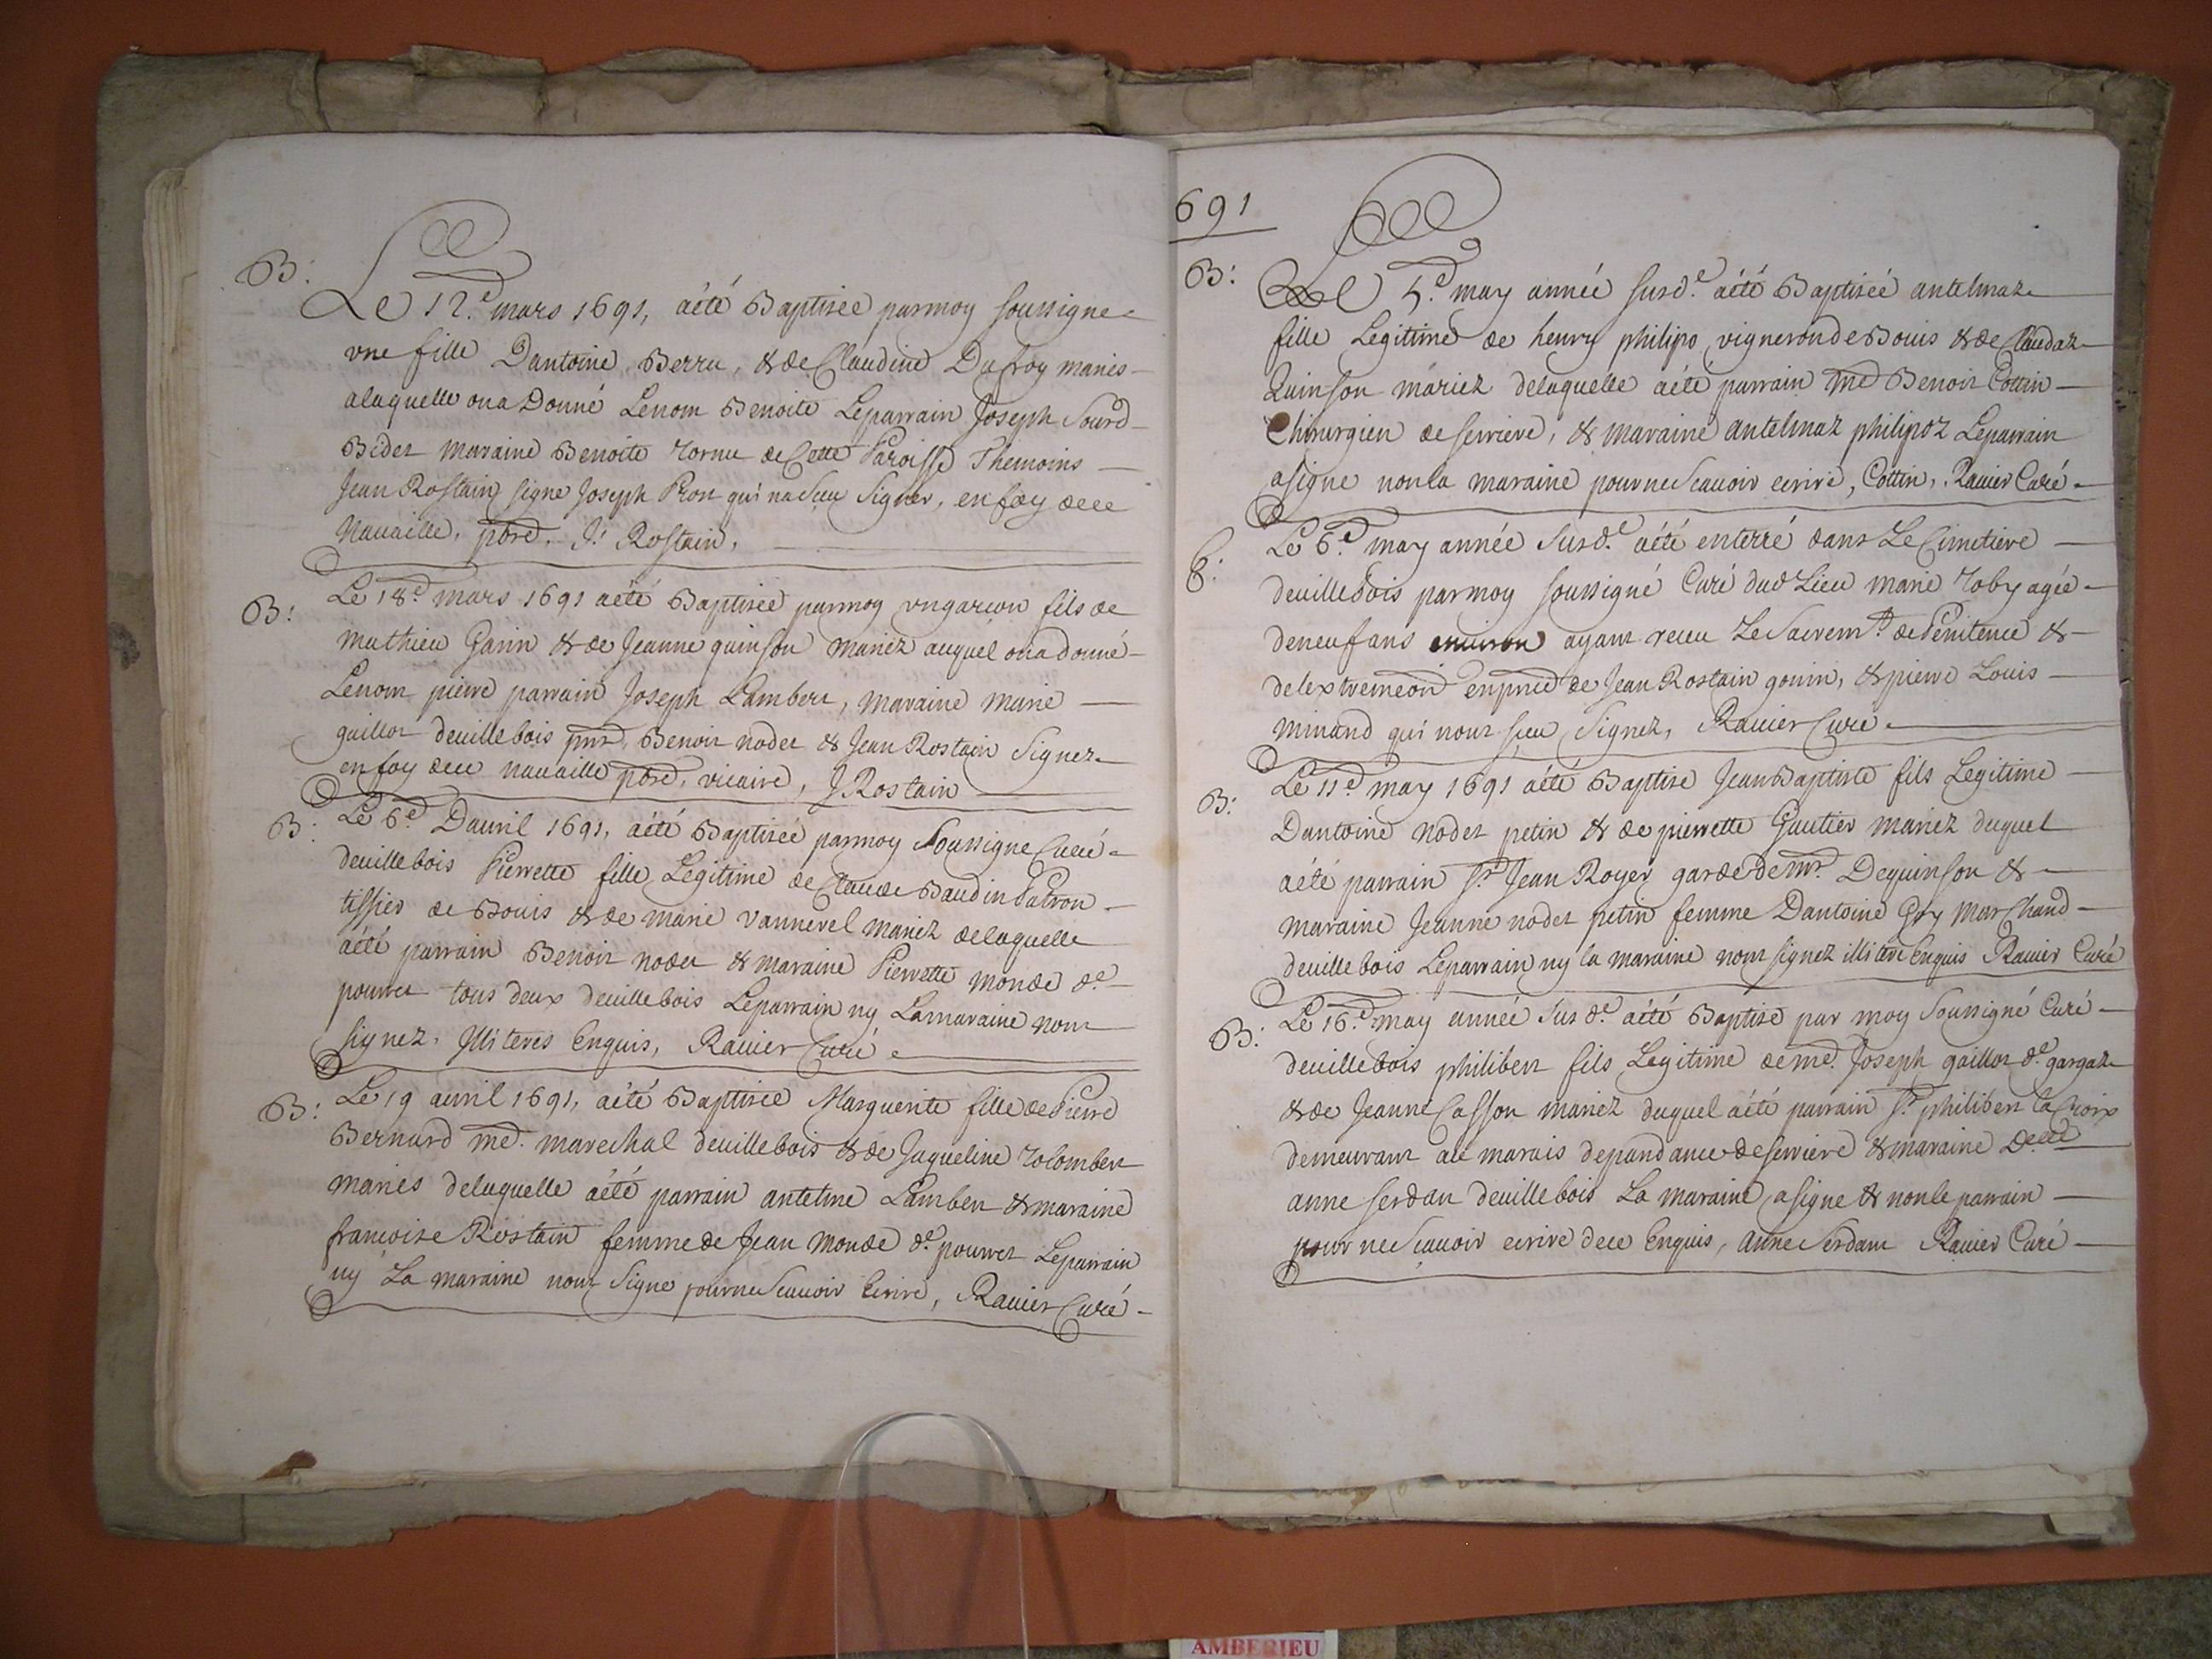 B:
Le 12.e mars 1691, aété Baptisée parmoy soussigne
vne fille Dantoine Berru, & de Claudine Ducroy mariés
alaquelle ona Donné Lenom Benoite Leparrain Joseph Sourd
Bidet maraine Benoite Tornu de Cette Paroisse Themoins
Jean Rostain signe Joseph Pron qui na sceu signer, en foy dece
Nauaille, pbre. J: Rostain,
B:
Le 18.e mars 1691 aété Baptisée parmoy vngarcon fils de
mathieu Garin & de Jeanne quinson Mariez auquel ona donné
Lenom pierre parrain Joseph Lambert, maraine Marie
gaillot deuillebois pnt, Benoit nodet & Jean Rostain Signez
enfoy dece nauaille pbre, vicaire, J Rostain
B:
Le 6.e Dauril 1691, aété Baptiseé parmoy Soussigne Curé
deuillebois Pierrette fille Legitime de Claude Baudin Patron
tissier de Bouis & de marie vannerel mariez delaquelle
aété parrain Benoit nodet & maraine Pierrette monde d.e
pourret tous deux deuillebois Leparrain ny Lamaraine nont
signez, Illiteres Enquis, Rauier Curé
B:
Le 19 auril 1691, aété Baptisée Marguerite fille de Pierre
Bernard me. marechal deuillebois & de Jaqueline Colombet
mariés delaquelle aété parrain antelme Lambert & maraine
francoise Rostain femme de Jean monde d.e pourret Leparrain
ny La maraine nont Signe pourne Scauoir Ecrire, Rauier Curé
691
B:
Le 5.e may année susd.e aété Baptiseé antelmaz
fille Legitime de henry philipo vigneron de Bouis & de Claudaz
Quinson mariez delaquelle aété parrain me Benoit Cottin
Chirurgien de serriere, & maraine antelmaz philipoz Leparrain
asigne nonla maraine pourne Scauoir ecrire, Cottin, Rauier Curé
Le 6.e may année Susd.e aété enterré dans Le Cimetiere
deuillebois parmoy soussigné Curé dud Lieu marie Toby agée
deneuf ans enuiron ayant receu Le Sacremt. de Penitence &
delextremeon enpnce de Jean Rostain gonin, & pierre Louis
minand qui nont sceu Signez, Rauier Cure
B:
Le 11.e may 1691 aété Baptise Jean Baptiste fils Legitime
Dantoine nodet petin & de pierrette Gautier mariez duquel
aété parrain sr. Jean Royer garde de mr. Dequinson &
maraine Jeanne nodet petin femme Dantoine Goy Marchand
deuillebois Leparrain ny la maraine nont signez illitere Enquis Rauier Curé
B:
Le 16.e may année Sus d.e aété Baptisé par moy Soussigné Curé
deuillebois philibert fils Legitime de me. Joseph gaillot d.e gargaz
& de Jeanne Casson mariez duquel aété parrain sr. philibert la Croix
demeurant au marais dependance de serriere & maraine Delle
anne serdan deuillebois La maraine asigne & nonle parrain
pour ne Scauoir ecrire dece Enquis, anne Serdant Rauier Curé
AMBERIEU